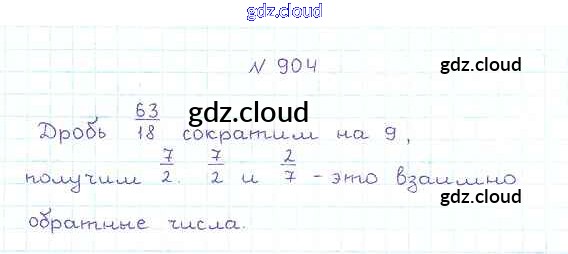 gdz.cloud
№ 904
gdz.cloud
Дробь 63/18 сократим на 9,
gdz.cloud
получим 7/2. 7/2 и 2/7 - это взаимно
gdz.cloud
обратные числа.